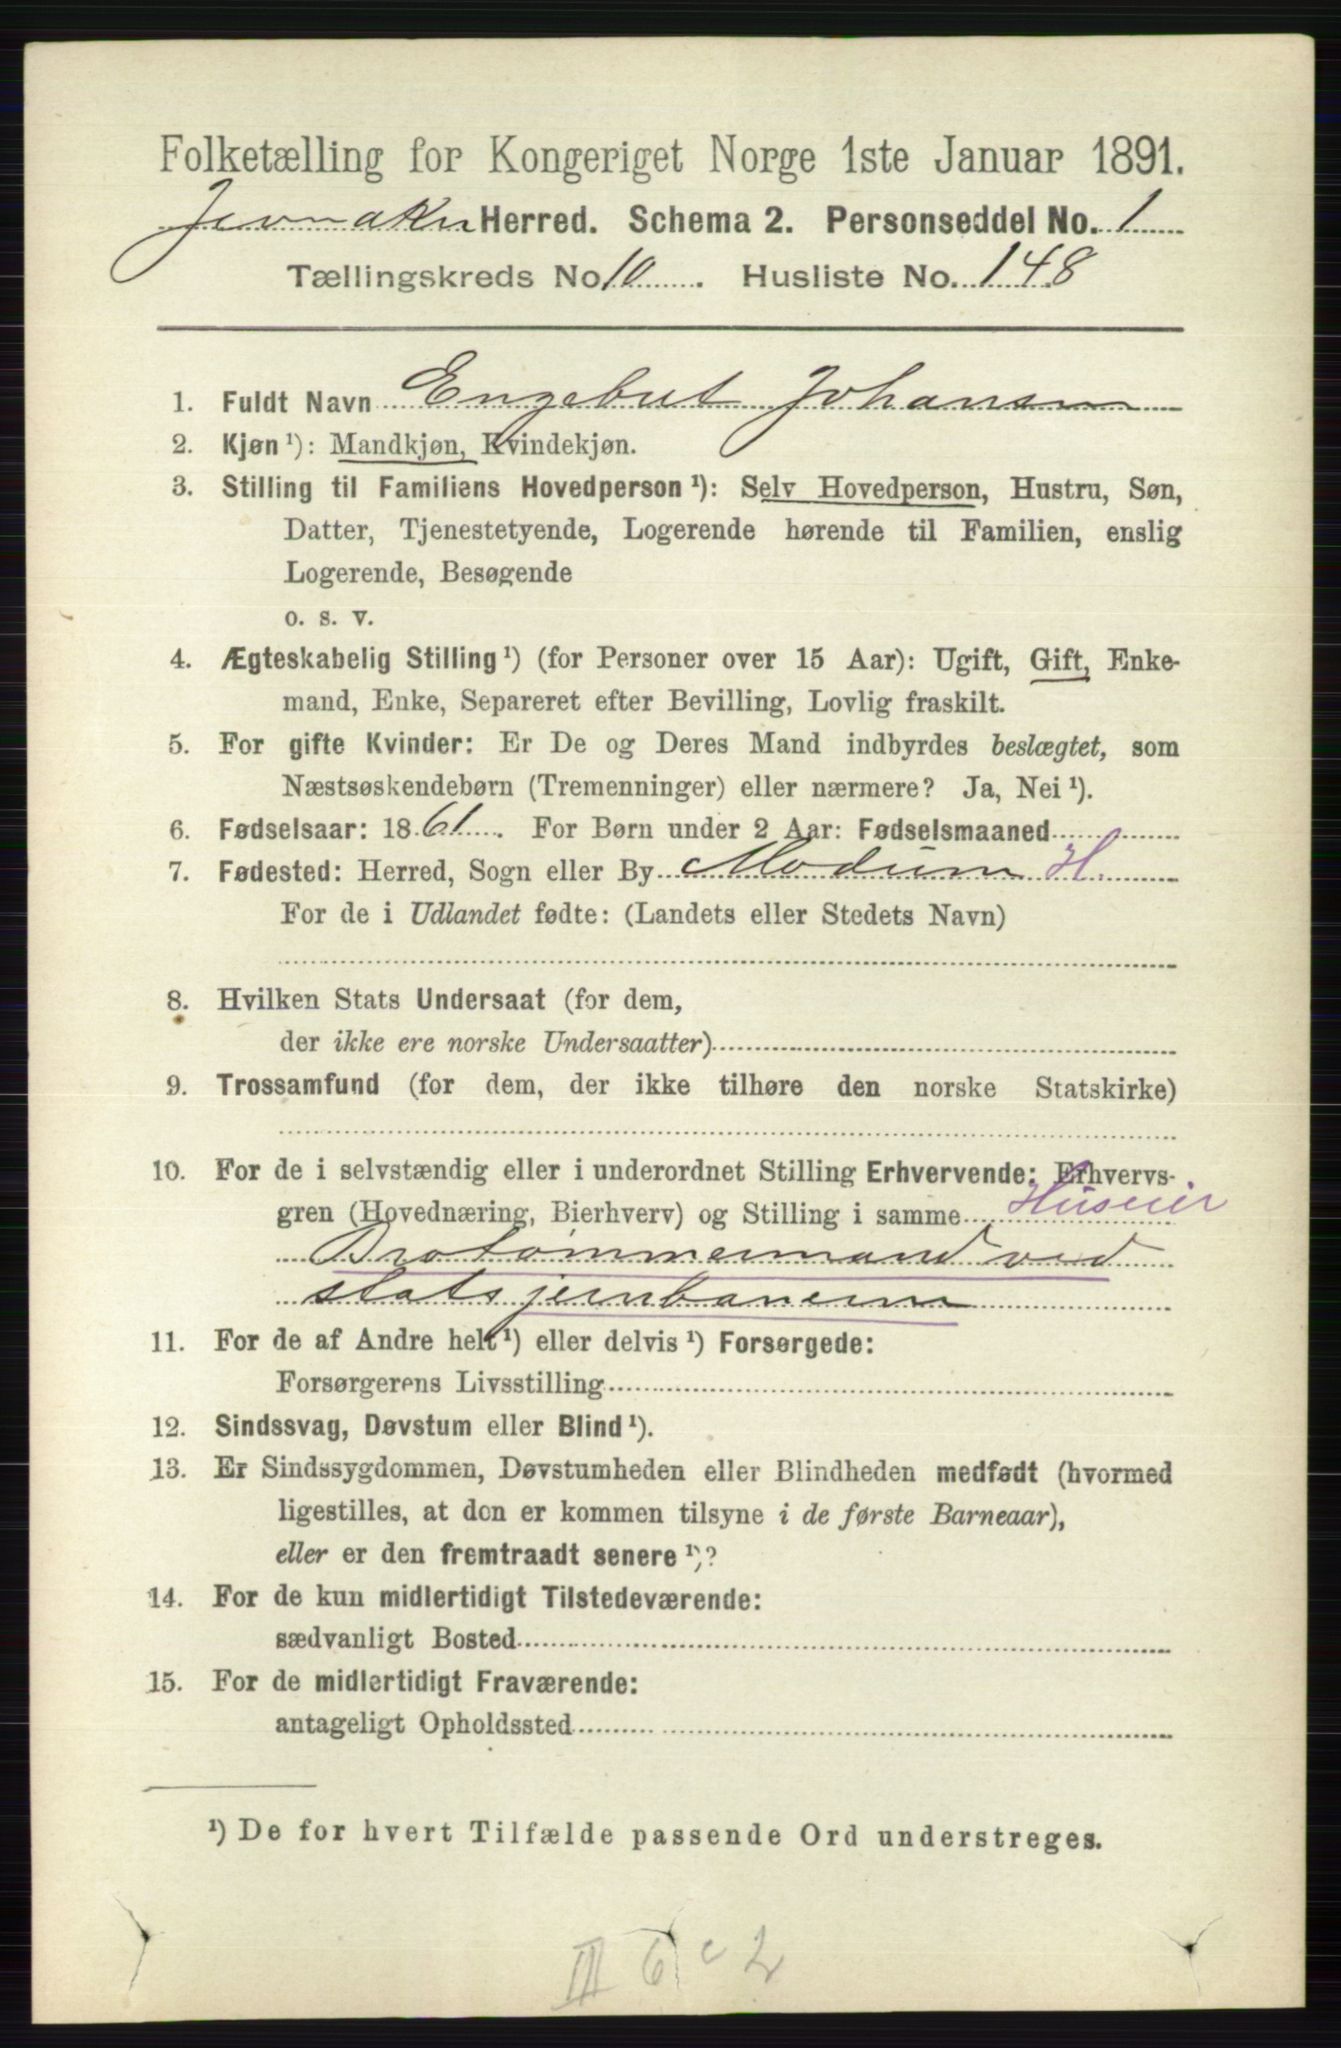 Folketælling for Kongeriget Norge 1ste Januar 1891.
Jevnaker Herred. Schema 2. Personseddel No. 1
Tællingskreds No 10. Husliste No. 148
1. Fuldt Navn Engebret Johansen
2. Kjøn ¹): Mandkjøn, Kvindekjøn.
3. Stilling til Familiens Hovedperson ¹): Selv Hovedperson, Hustru, Søn,
Datter, Tjenestetyende, Logerende hørende til Familien, enslig
Logerende, Besøgende
o. s. v.
4. Ægteskabelig Stilling ¹) (for Personer over 15 Aar): Ugift, Gift, Enke-
mand, Enke, Separeret efter Bevilling, Lovlig fraskilt.
5. For gifte Kvinder: Er De og Deres Mand indbyrdes beslægtet, som
Næstsøskendebørn (Tremenninger) eller nærmere? Ja, Nei ¹).
6. Fødselsaar: 1861. For Børn under 2 Aar: Fødselsmaaned
7. Fødested: Herred, Sogn eller By Modum H.
For de i Udlandet fødte: (Landets eller Stedets Navn)
8. Hvilken Stats Undersaat (for dem,
der ikke ere norske Undersaatter)
9. Trossamfund (for dem, der ikke tilhøre den norske Statskirke)
10. For de i selvstændig eller i underordnet Stilling Erhvervende: Erhvervs-
gren (Hovednæring, Bierhverv) og Stilling i samme Huseier
Brotømmermand ved
statsjernbanerne
11. For de af Andre helt ¹) eller delvis ¹) Forsørgede:
Forsørgerens Livsstilling
12. Sindssvag, Døvstum eller Blind ¹).
13. Er Sindssygdommen, Døvstumheden eller Blindheden medfødt (hvormed
ligestilles, at den er kommen tilsyne i de første Barneaar),
eller er den fremtraadt senere ¹)?
14. For de kun midlertidigt Tilstedeværende:
sædvanligt Bosted
15. For de midlertidigt Fraværende:
antageligt Opholdssted
¹) De for hvert Tilfælde passende Ord understreges.
III 6 c 2